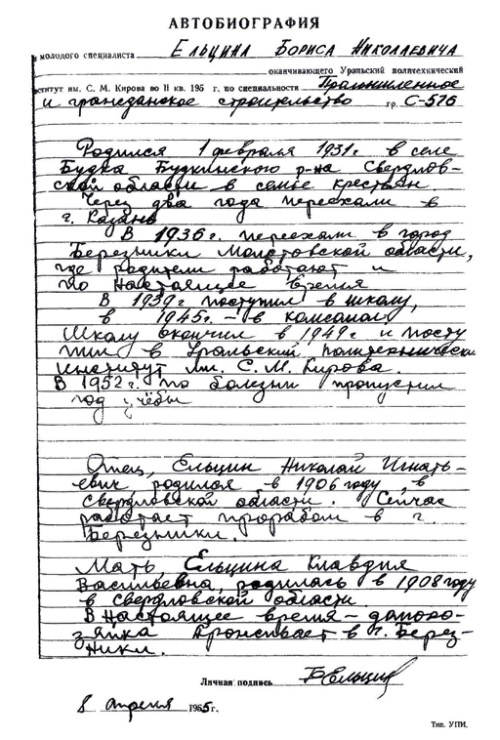 АВТОБИОГРАФИЯ
молодого специалиста Ельцина Бориса Николаевича
оканчивающего Уральский политехнический
институт им. С. М. Кирова во II кв. 195 г. по специальности Промышленное
и гражданское строительство гр. С-516
Родился 1 февраля 1931г. в селе
Будка Будкинского р-на Свердлов-
ской области в семье крестьян
Через два года переехали в
г. Казань
В 1936г. переехали в город
Березники Молотовской области,
где родители работают и
по настоящее время
В 1939г поступил в школу,
в 1945г. – в комсомол
Школу окончил в 1949г и посту
пил в Уральский политехнически
институт им. С. М. Кирова.
В 1952г. по болезни пропустил
год учёбы
Отец, Ельцин Николай Игнать-
евич родился в 1906 году, в
Свердловской области. Сейчас
работает прорабом в г.
Березники.
Мать, Ельцина Клавдия
Васильевна, родилась в 1908 году
в Свердловской области.
В настоящее время – домохо-
зяйка проживает в г. Берез-
ники.
Личная подпись БЕльцин
8 апреля 1955г.
Тип. УПИ.